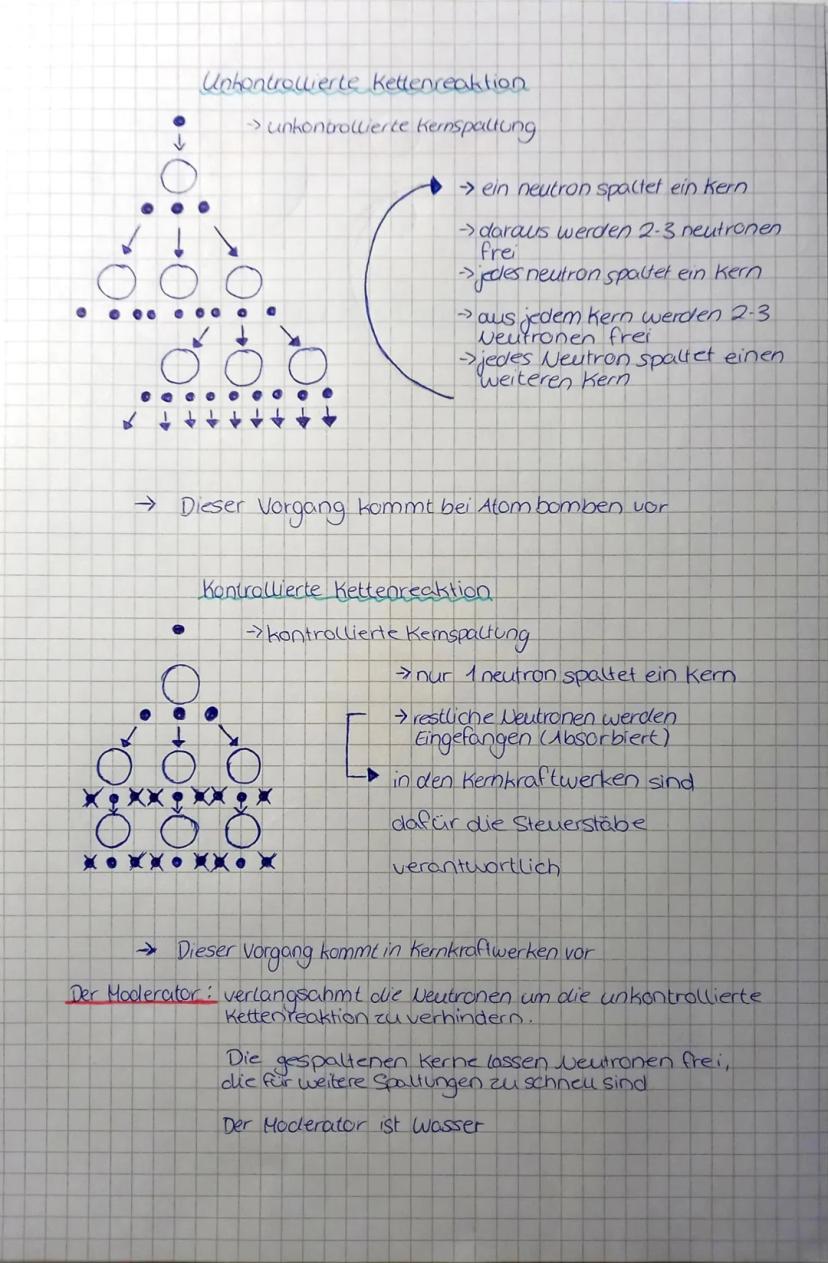 Unkontrollierte Kettenreaktion
→ unkontrollierte Kernspaltung
→ ein neutron spaltet ein Kern
→ daraus werden 2-3 neutronen
frei
→ jedes neutron spaltet ein Kern
→ aus jedem Kern werden 2-3
Neutronen frei
→ jedes Neutron spaltet einen
weiteren Kern
→ Dieser Vorgang kommt bei Atombomben vor
Kontrollierte Kettenreaktion
→ kontrollierte Kernspaltung
→ nur 1 neutron spaltet ein Kern
→ restliche Neutronen werden
Eingefangen (Absorbiert)
in den Kernkraftwerken sind
dafür die Steuerstäbe
verantwortlich
→ Dieser Vorgang kommt in Kernkraftwerken vor
Der Moderator: verlangsahmt die Neutronen um die unkontrollierte
Kettenreaktion zu verhindern.
Die gespaltenen Kerne lassen Neutronen frei,
die für weitere Spaltungen zu schnell sind
Der Moderator ist Wasser